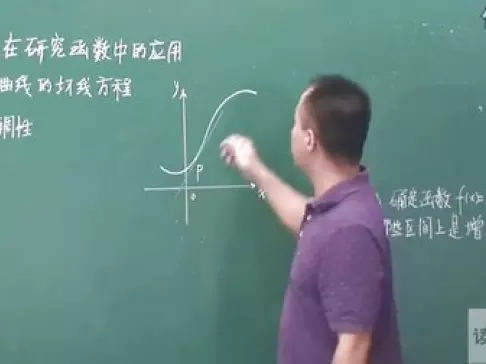 在研究函数中的应用
曲线的切线方程
调性
y
P
x
0
确定函数f(x)=
些区间上是增
读